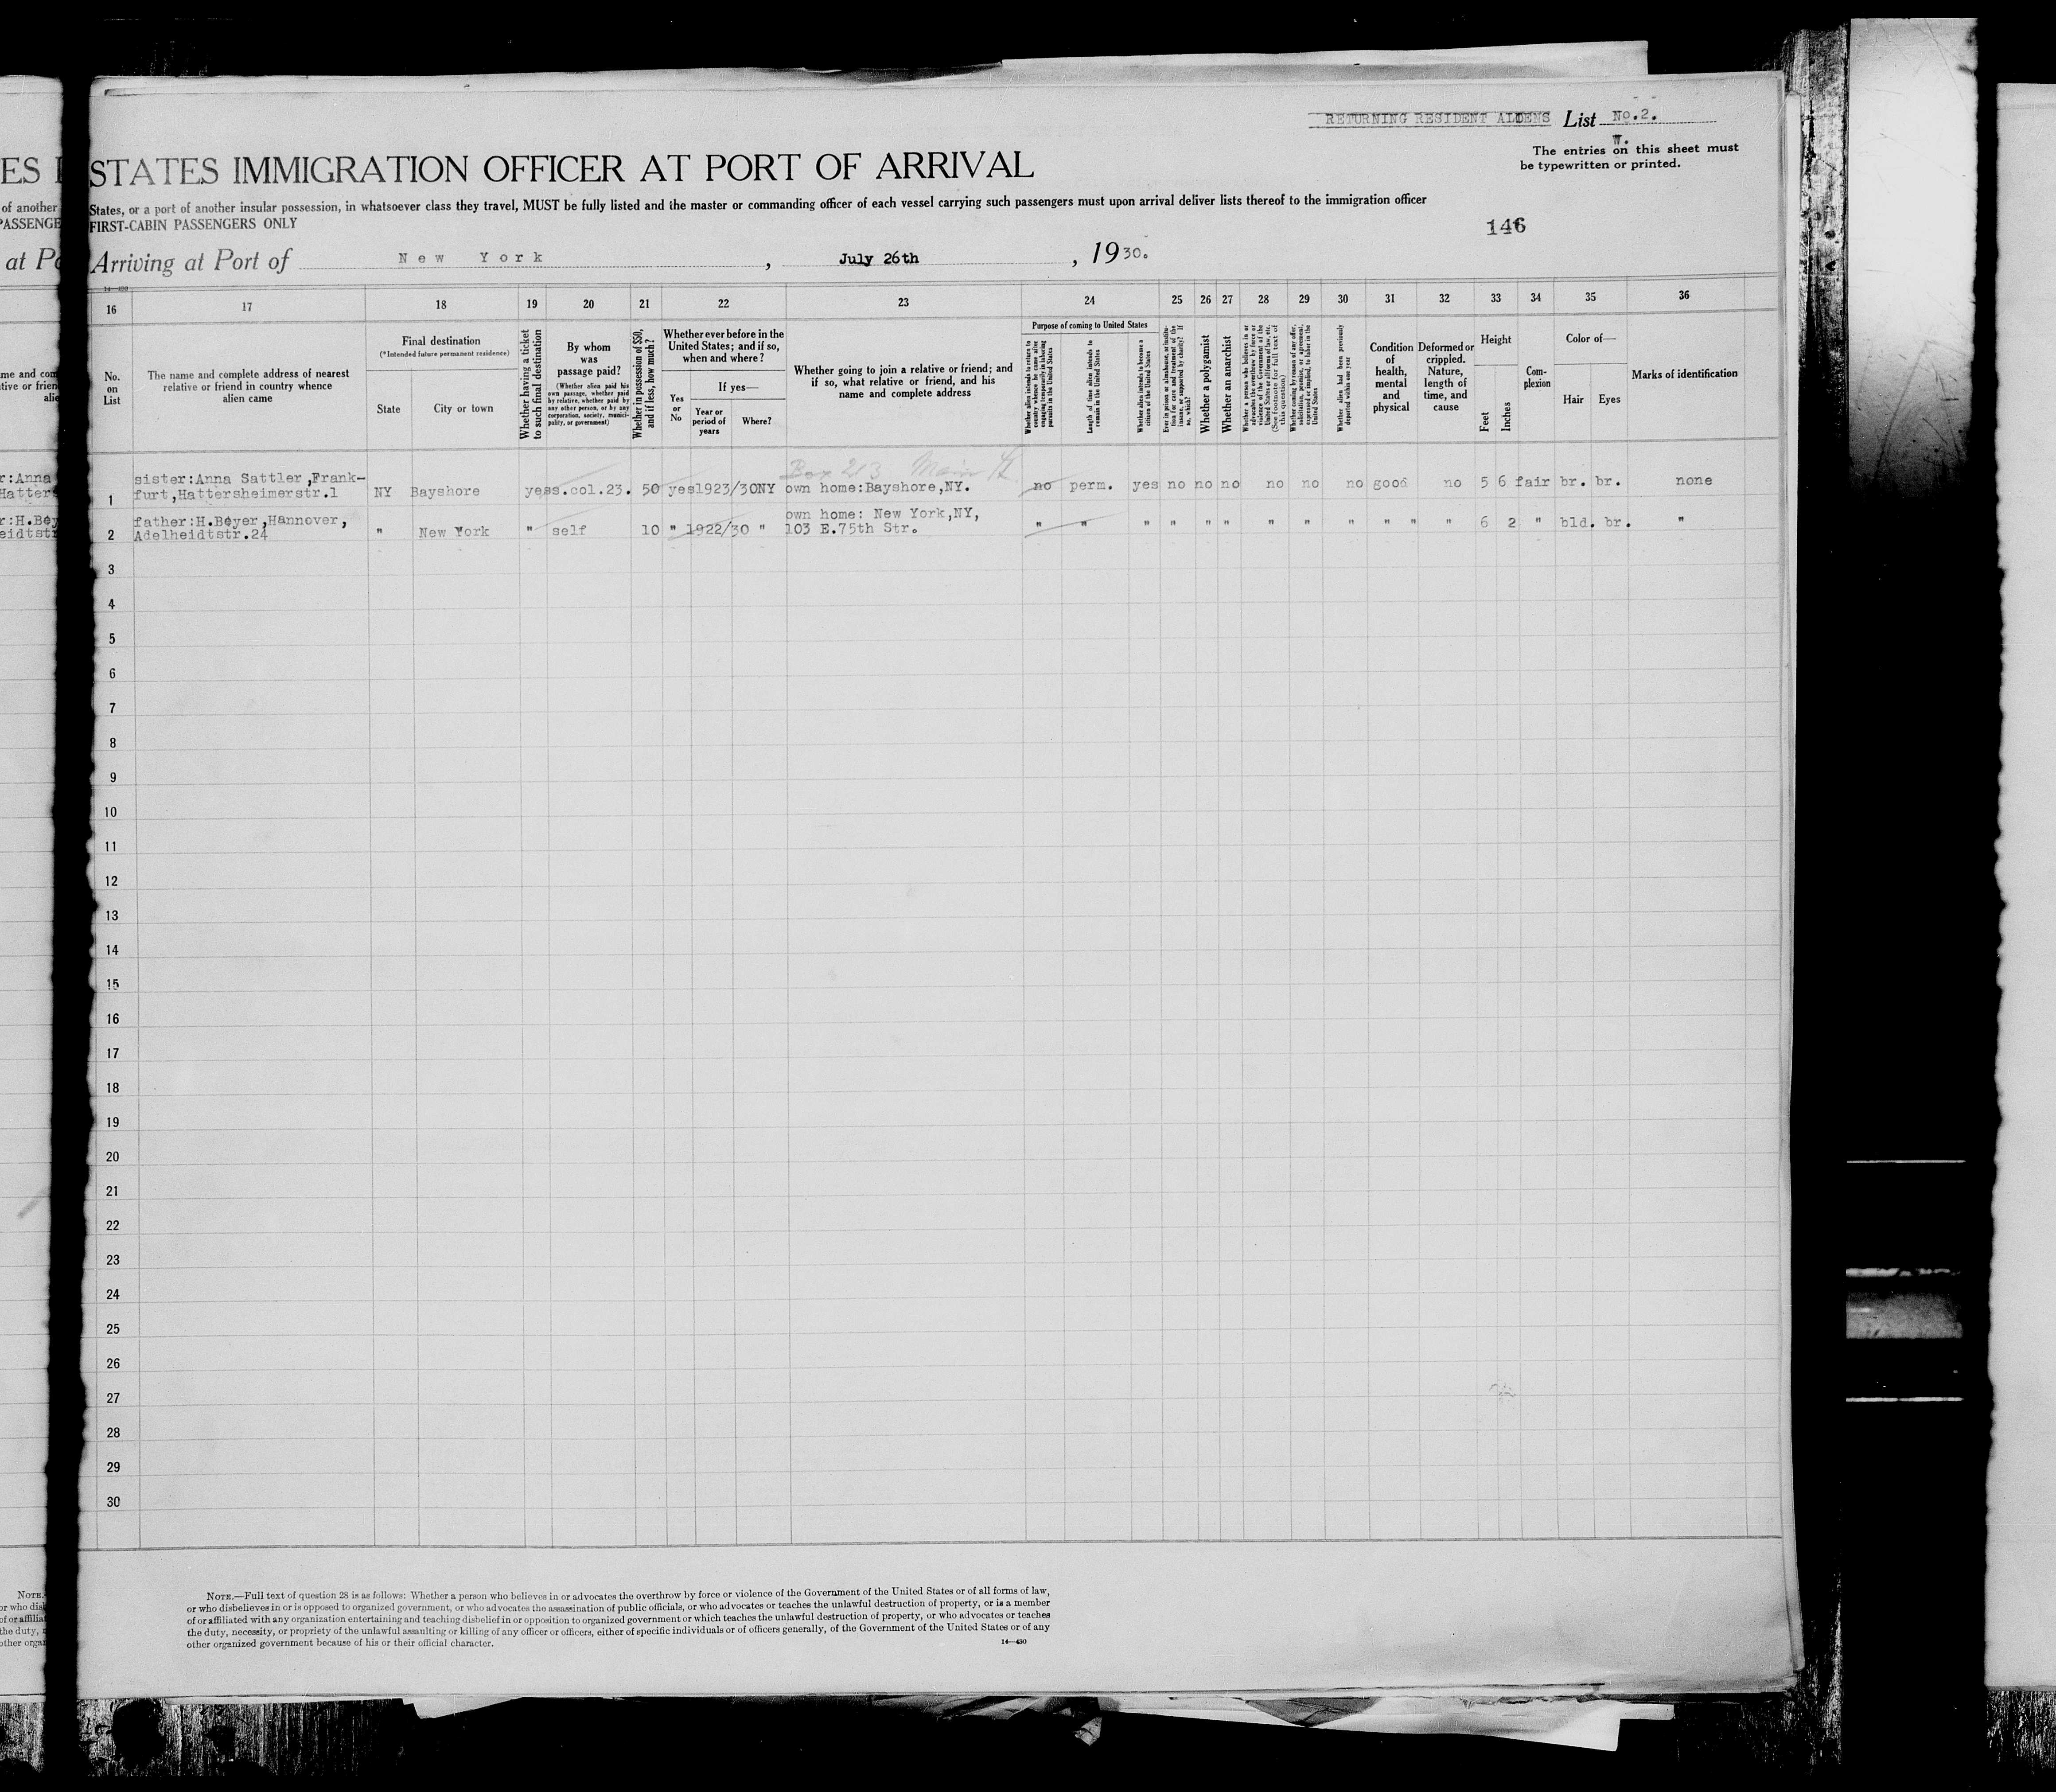 RETURNING RESIDENT ALIENS List No.2.
W.
The entries on this sheet must
be typewritten or printed.
STATES IMMIGRATION OFFICER AT PORT OF ARRIVAL
States, or a port of another insular possession, in whatsoever class they travel, MUST be fully listed and the master or commanding officer of each vessel carrying such passengers must upon arrival deliver lists thereof to the immigration officer
FIRST-CABIN PASSENGERS ONLY
146
Arriving at Port of New York, July 26th, 1930.
14—430
16 17 18 19 20 21 22 23 24 25 26 27 28 29 30 31 32 33 34 35 36
No. on List
The name and complete address of nearest
relative or friend in country whence
alien came
Final destination
(*Intended future permanent residence)
State
City or town
Whether having a ticket
to such final destination
By whom
was
passage paid?
(Whether alien paid his
own passage, whether paid
by relative, whether paid by
any other person, or by any
corporation, society, munici-
pality, or government)
Whether in possession of $50,
and if less, how much?
Whether ever before in the
United States; and if so,
when and where?
Yes
or
No
If yes—
Year or
period of
years
Where?
Whether going to join a relative or friend; and
if so, what relative or friend, and his
name and complete address
Purpose of coming to United States
Whether alien intends to return to
country whence he came after
engaging temporarily in laboring
pursuits in the United States
Length of time alien intends to
remain in the United States
Whether alien intends to become a
citizen of the United States
Ever in prison or almshouse, or institu-
tion for care and treatment of the
insane, or supported by charity? If
so, which?
Whether a polygamist
Whether an anarchist
Whether a person who believes in or
advocates the overthrow by force or
violence of the Government of the
United States or all forms of law, etc.
(See footnote for full text of
this question)
Whether coming by reason of any offer,
solicitation, promise, or agreement,
expressed or implied, to labor in the
United States
Whether alien had been previously
deported within one year
Condition
of
health,
mental
and
physical
Deformed or
crippled.
Nature,
length of
time, and
cause
Height
Feet
Inches
Com-
plexion
Color of—
Hair
Eyes
Marks of identification
Box 213 Main St
sister:Anna Sattler,Frank-
1 furt,Hattersheimerstr.1 NY Bayshore yes s.col.23. 50 yes 1923/30 NY own home:Bayshore,NY. no perm. yes no no no no no no good no 5 6 fair br. br. none
father:H.Beyer,Hannover, own home: New York,NY,
2 Adelheidtstr.24 " New York " self 10 " 1922/30 " 103 E.75th Str. " " " " " " " " " " " " 6 2 " bld. br. "
3
4
5
6
7
8
9
10
11
12
13
14
15
16
17
18
19
20
21
22
23
24
25
26
27
28
29
30
NOTE.—Full text of question 28 is as follows: Whether a person who believes in or advocates the overthrow by force or violence of the Government of the United States or of all forms of law,
or who disbelieves in or is opposed to organized government, or who advocates the assassination of public officials, or who advocates or teaches the unlawful destruction of property, or is a member
of or affiliated with any organization entertaining and teaching disbelief in or opposition to organized government or which teaches the unlawful destruction of property, or who advocates or teaches
the duty, necessity, or propriety of the unlawful assaulting or killing of any officer or officers, either of specific individuals or of officers generally, of the Government of the United States or of any
other organized government because of his or their official character.
14—430